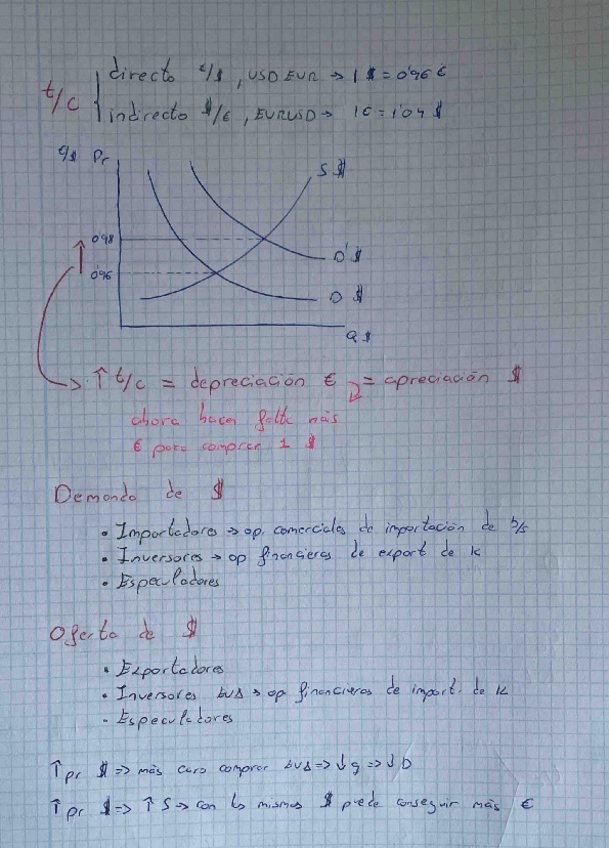 t/c
directo €/$, USDEUR → 1 $ = 0'96 €
indirecto $/€, EURUSD → 1€ = 1'04 $
€/$ Pr
S $
0'98
D' $
0'96
D $
Q $
↑ t/c = depreciación € = apreciación $
ahora hacen falta más
€ para comprar 1 $
Demanda de $
• Importadores → op. comerciales de importación de b/s
• Inversores → op financieras de export de K
• Especuladores
Oferta de $
• Exportadores
• Inversores → op financieras de import. de K
• Especuladores
↑ pr $ => más caro comprar => ↓ => ↓ D
↑ pr $ => ↑ S → con los mismos $ puede conseguir más €